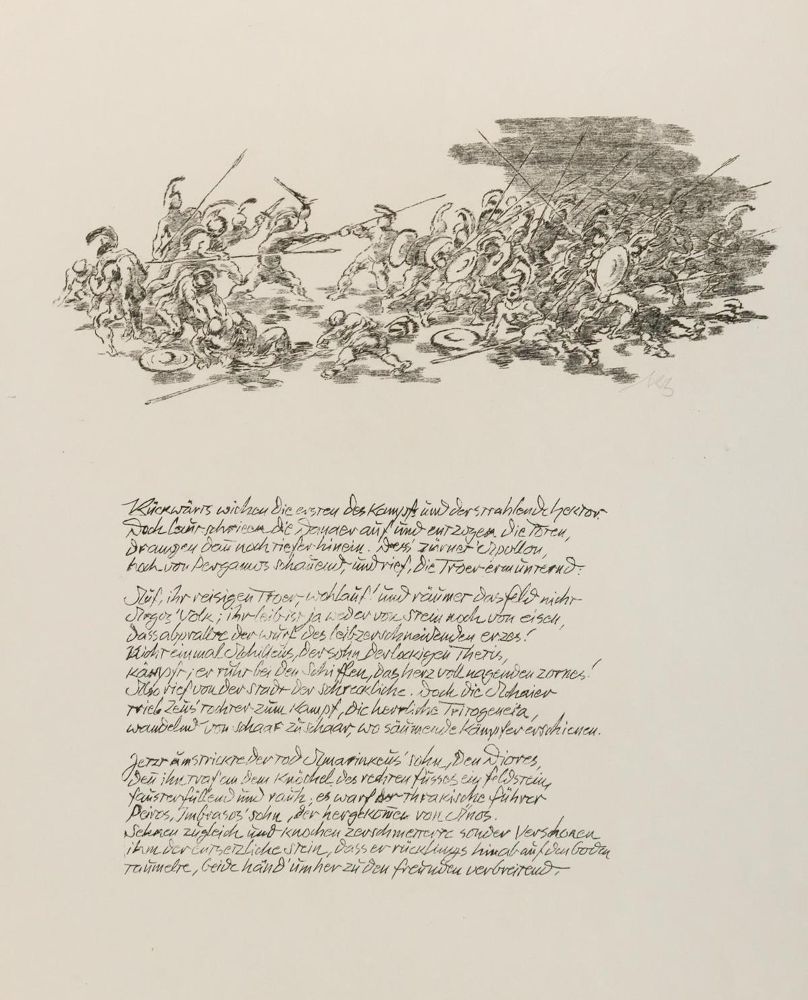 Rückwärts wichen die ersten des Kampfs und der strahlende Hektor.
Doch laut schrieen die Danaer auf und entzogen die Toten,
drangen dañ noch tiefer hinein. Dess' zürnet' Apollon,
hoch von Pergamos schauend, und rief, die Troer ermunternd:
Auf, ihr reisigen Troer, wohlauf! und räumet das Feld nicht
Argos' Volk; ihr Leib ist ja weder von Stein noch von Eisen,
dass abprallte der Wurf des leibzerschneidenden Erzes!
Nicht einmal Achilleus, der Sohn der lockigen Thetis,
kämpft; er ruht bei den Schiffen, das Herz voll nagenden Zornes!
Also rief von der Stadt der Schreckliche. Doch die Achaier
trieb Zeus' Tochter zum Kampf, die herrliche Tritogeneia,
wandelnd von Schaar zu Schaar, wo säumende Kämpfer erschienen.
Jetzt umstrickte der Tod Amarinkeus' Sohn, den Diores,
Deñ ihn traf an dem Knöchel des rechten Fusses ein Feldstein,
fausterfüllend und rauh; es warf der thrakische Führer
Peiros, Imbrasos' Sohn, der hergekom̄en von Ainos.
Sehnen zugleich und Knochen zerschmetterte sonder Verschonen
ihm der entsetzliche Stein, dass er rücklings hinab auf den Boden
taumelte, beide Händ' umher zu den Freunden verbreitend.